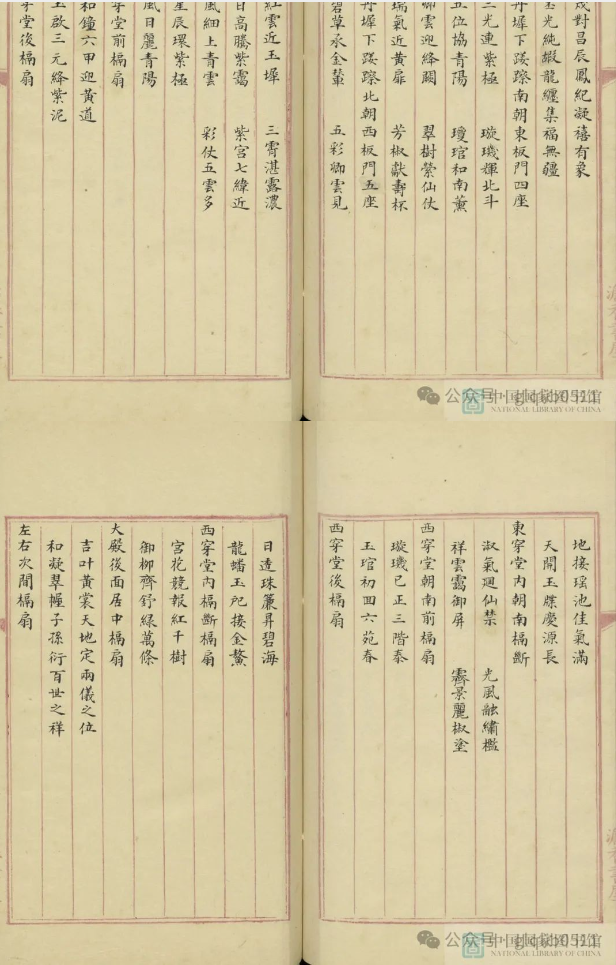 對昌辰鳳紀凝禧有象
光純嘏龍纏集福無疆
丹墀下踏跺南朝東板門四座
三光連紫極 璇璣輝北斗
五位協青陽 瓊琯和南薰
卿雲迎絳闕 翠樹縈仙仗
瑞氣近黃扉 芳椒獻壽杯
丹墀下踏跺北朝西板門五座
碧草承金輦 五彩卿雲見
紅雲近玉墀 三霄湛露濃
日高騰紫靄 紫宮七緯近
風細上青雲 彩仗五雲多
星辰環紫極
風日麗青陽
穿堂前槅扇
和鐘六甲迎黃道
玉啟三元絳紫泥
穿堂後槅扇
公众号
中国国家图书馆
NATIONAL LIBRARY OF CHINA
地接瑤池佳氣滿
天開玉牒慶源長
東穿堂內朝南槅斷
淑氣迴仙禁 光風融繡檻
祥雲靄御屏 霽景麗椒塗
西穿堂朝南前槅扇
璇璣已正三階泰
玉琯初回六苑春
西穿堂後槅扇
日遶珠簾昇碧海
龍蟠玉戺接金鰲
西穿堂內槅斷槅扇
宮花競報紅千樹
御柳齊舒綠萬條
大殿後面居中槅扇
吉叶黃裳天地定兩儀之位
和凝翠幄子孫衍百世之祥
左右次間槅扇
公众号
中国国家图书馆
NATIONAL LIBRARY OF CHINA